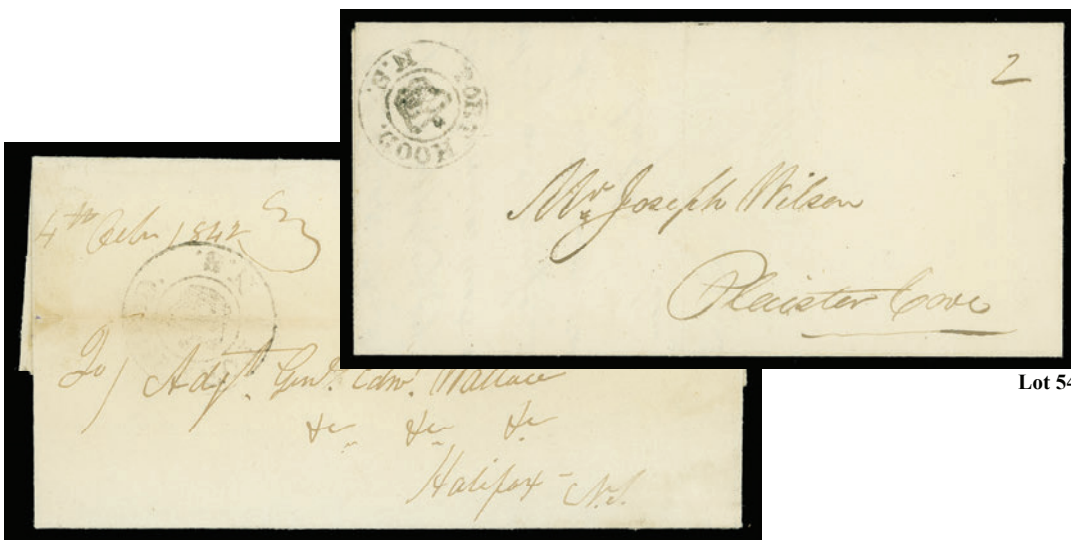 PORT HOOD. N.S.
2
Mr Joseph Wilson
Plaister Cove
4th 1842
To/ Adjt. Genl. Edwd. Wallace
&c &c &c
Halifax - N.S.
Lot 54